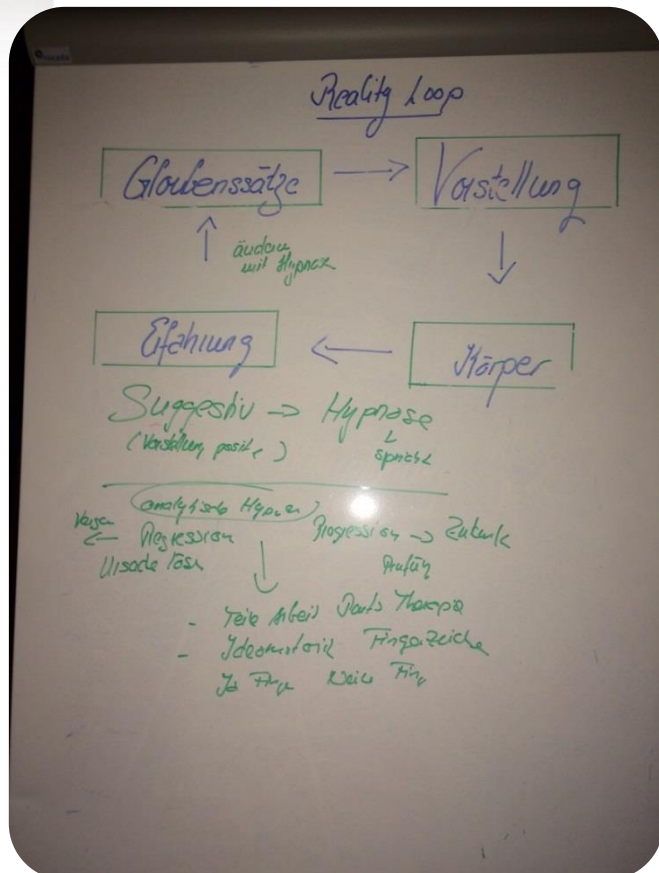 Reality Loop
Glaubenssätze → Vorstellung
↑ ↓
ändern
mit Hypnose
Erfahrung ← Körper
Suggestiv → Hypnose
(Vorstellung positiv)
Sprache
analytische Hypnose
← Regression Progression → Zukunft
Ursache lösen
↓
- Teile Arbeit Parts Therapie
- Ideomotorik Fingerzeichen
Ja Finger Nein Finger